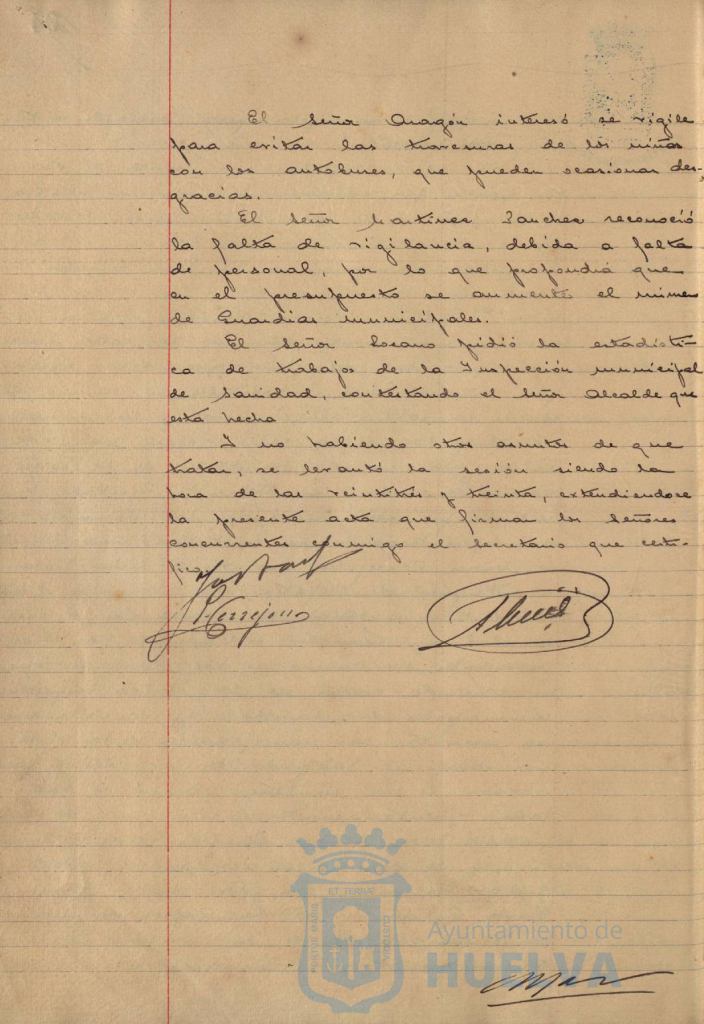 El señor Aragón interesó se vigile
para evitar las travesuras de los niños
con los autobuses, que pueden ocasionar des-
gracias.
El señor Martínez Sanchez reconoció
la falta de vigilancia, debida a falta
de personal, por lo que propondrá que
en el presupuesto se aumente el número
de Guardias municipales.
El señor Lozano pidió la estadísti-
ca de trabajos de la Inspección municipal
de Sanidad, contestando el señor Alcalde que
está hecha
Y no habiendo otros asuntos de que
tratar, se levantó la sesión siendo la
hora de las veintitres y treinta, extendiendose
la presente acta que firman los señores
concurrentes conmigo el secretario que certi-
fico.
Terrejon
ET TERRAE
PORTUS MARIS
CUSTODIA
Ayuntamiento de
HUELVA